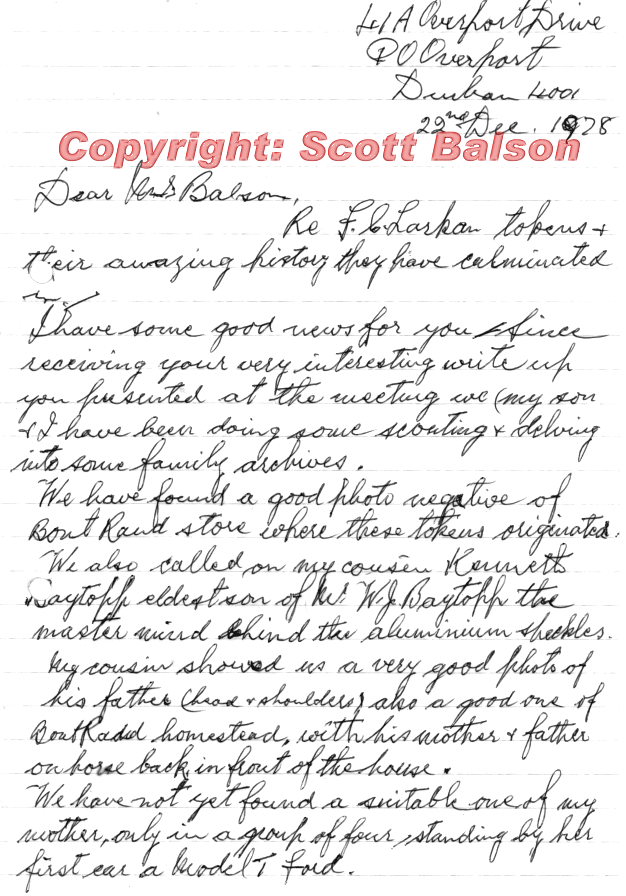 41A Overport Drive
PO Overport
Durban 4001
22nd Dec. 1978
Copyright: Scott Balson
Dear Mrs Balson,
Re F.C Larkan tokens +
their amazing history they have culminated
in.
I have some good news for you Since
receiving your very interesting write up
you presented at the meeting we (my son
+ I have been doing some scouting + delving
into some family archives.
We have found a good photo negative of
Bont Rand store where these tokens originated.
We also called on my cousin Kenneth
Baytopp eldest son of Mr W.J. Baytopp the
master mind behind the aluminium speckles.
My cousin showed us a very good photo of
his father (head + shoulders) also a good one of
Bont Rand homestead, with his mother + father
on horse back, in front of the house.
We have not yet found a suitable one of my
mother, only in a group of four, standing by her
first car a Model T Ford.